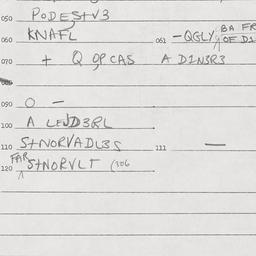 050 PODESTV3
060 KNAFL 061 -QGLY BA FR OF D1
070 + Q OP CAS A D1N3R3
090 O -
100 A LEND3RL
110 S+NORVADL3S 111 -
120 FAR S+NORVLT (306